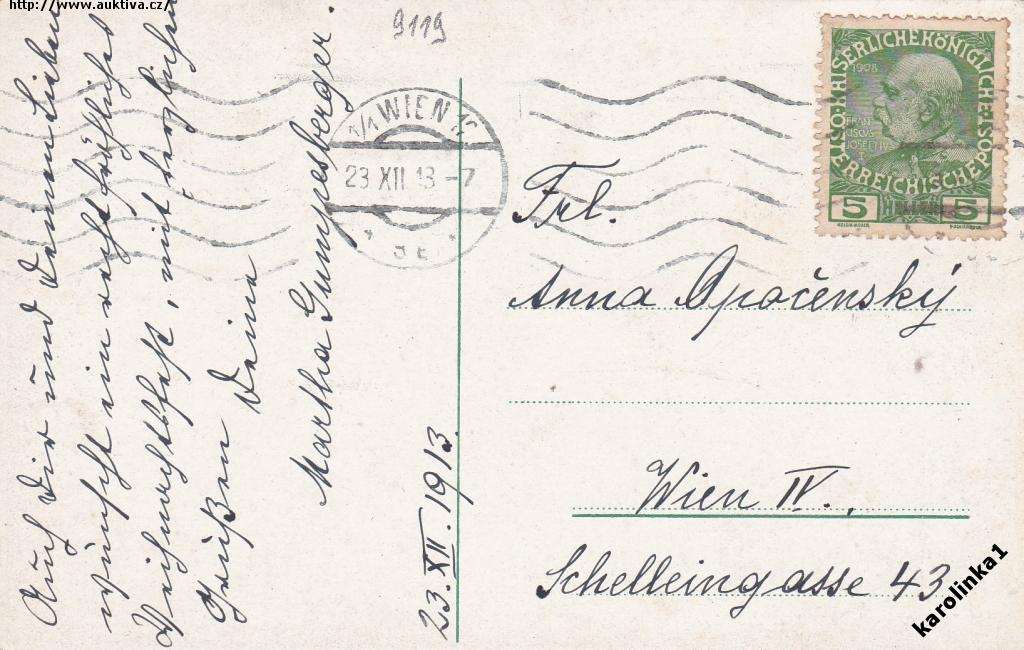 http://www.auktiva.cz/
9119
Auch Dir und Deinen Lieben
wünscht ein recht fröhliches
Weihnachtsfest, mit herzlichen
Grüßen Deine
Martha Gumpesberger.
23. XII. 1913
1/1 WIEN
23 XII 13 -7
KAISERLICHE KÖNIGLICHE ÖSTERREICHISCHE POST
1908
FRAN
CISCVS
JOSEPHVS
5 HELLER 5
Frl.
Anna Opočenský
Wien IV.,
Schelleingasse 43.
karolinka1